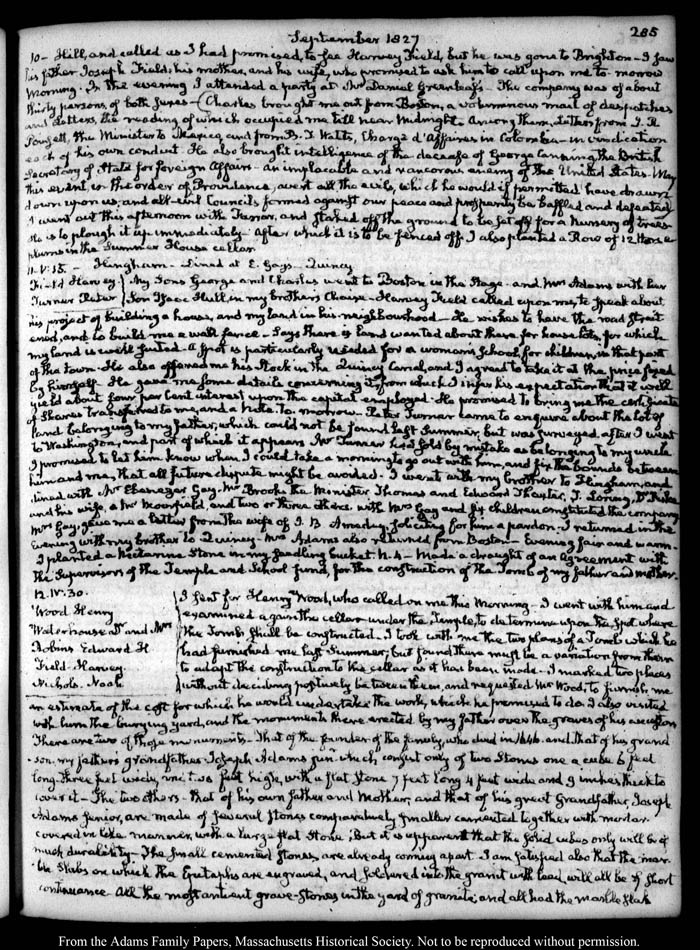 September 1827
285
10- Hill, and called as I had promised, to see Harvey Field, but he was gone to Brighton - I saw
his father Joseph Field; his mother, and his wife, who promised to ask him to call upon me to-morrow
Morning. In the evening I attended a party at Mr Daniel Greenleaf's - The company was of about
thirty persons, of both sexes - Charles brought me out from Boston, a voluminous mail of despatches
and letters, the reading of which occupied me till near midnight. Among them, letters from J. R.
Poinsett, the Minister to Mexico, and from B. T. Watts, Chargé d'Affaires in Colombia - in vindication
each of his own conduct. He also brought intelligence of the decease of George Canning, the British
Secretary of State for foreign Affairs - an implacable and rancorous enemy of the United States. May
this event, in the order of Providence, avert all the evils, which he would if permitted have drawn
down upon us; and all evil Councils formed against our peace and prosperity be baffled and defeated
I went out this afternoon with Turner, and staked off the ground to be set off for a Nursery of trees
He is to plough it up immediately - after which it is to be fenced off. I also planted a Row of 12 Horse
plums in the Summer House cellar.
11. V. 15. - Hingham - Dined at E. Gays - Quincy
Field Harvey
Turner Peter
My Sons George and Charles went to Boston in the Stage - and Mrs Adams with her
Son Isaac Hull, in my brother's Chaise - Harvey Field called upon me, to speak about
his project of building a house, and my land in his neighbourhood - He wishes to have the road straitened, and to build me a wall fence - Says there is land wanted about there, for house lots, for which
my land is well suited. A spot is particularly needed for a woman's School, for children, in that part
of the town. He also offered me his Stock in the Quincy Canal, and I agreed to take it at the price fixed
by himself. He gave me some details concerning it, from which I infer his expectation that it will
yield about four per Cent interest upon the capital employed. He promised to bring me the certificate
of Shares transferred to me, and a Note to-morrow. Peter Turner came to enquire about the lot of
land belonging to my father, which could not be found last Summer, but was surveyed after I went
to Washington, and part of which it appears Mr Turner has sold by mistake as belonging to my uncle
I promised to let him know when I could take a morning to go out with him, and fix the bounds between
him and me, that all future dispute might be avoided. I went with my brother to Hingham, and
dined with Mr Ebenezer Gay. Mr Brooks the Minister Thomas and Edward Thaxter, J. Loring, Dr
and his wife, a Mr and two or three others with Mrs Gay and six children constituted the company
Mrs Gay, gave me a letter from the wife of J. B. soliciting for him a pardon. I returned in the
Evening with my brother to Quincy - Mrs Adams also returned from Boston - Evening fair and warm -
I planted a Nectarine Stone in my seedling bucket N. 4 - Made a draught of an Agreement with
the Supervisors of the Temple and School fund, for the construction of the Tomb of my father and mother.
12. IV. 30.
Wood Henry
Waterhouse Dr and Mrs
Robins Edward H
Field Harvey
Nichols Noah
I sent for Henry Wood, who called on me this Morning - I went with him and
examined again the cellar under the Temple, to determine upon the spot where
the Tomb shall be constructed. I took with me the two plans of a Tomb which he
had furnished me last Summer; but found there must be a variation from them
to adapt the construction to the cellar as it has been made. I marked two places
without deciding positively between them, and requested Mr Wood, to furnish me
an estimate of the cost for which he would undertake the work, which he promised to do. I also visited
with him the burying yard, and the monuments there erected by my father over the graves of his ancestors
There are two of those monuments - That of the founder of the family, who died in 1646. and that of his grand
-son, my father's grandfather Joseph Adams junr which consist only of two Stones one a cube 6 feet
long three feet wide, and feet high, with a flat Stone 7 feet long 4 feet wide and 9 inches thick to
cover it - The two others - that of his own father and Mother, and that of his great Grandfather, Joseph
Adams Senior, are made of several Stones comparatively smaller cemented together with mortar
covered in like manner, with a large flat Stone; But it is apparent that the solid cubes only will be of
much durability - The small cemented Stones, are already coming apart. I am satisfied also that the mar-
-ble Slabs on which the Epitaphs are engraved, and soldered into the granite with lead, will all be of short
continuance - All the most antient grave-stones in the yard of granite; and all had the marble slab
From the Adams Family Papers, Massachusetts Historical Society. Not to be reproduced without permission.